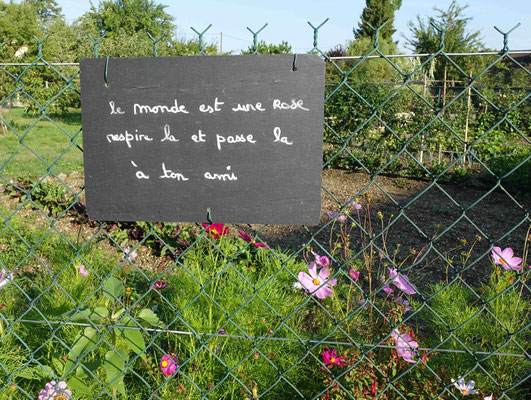 le monde est une Rose
respire la et passe la
à ton ami